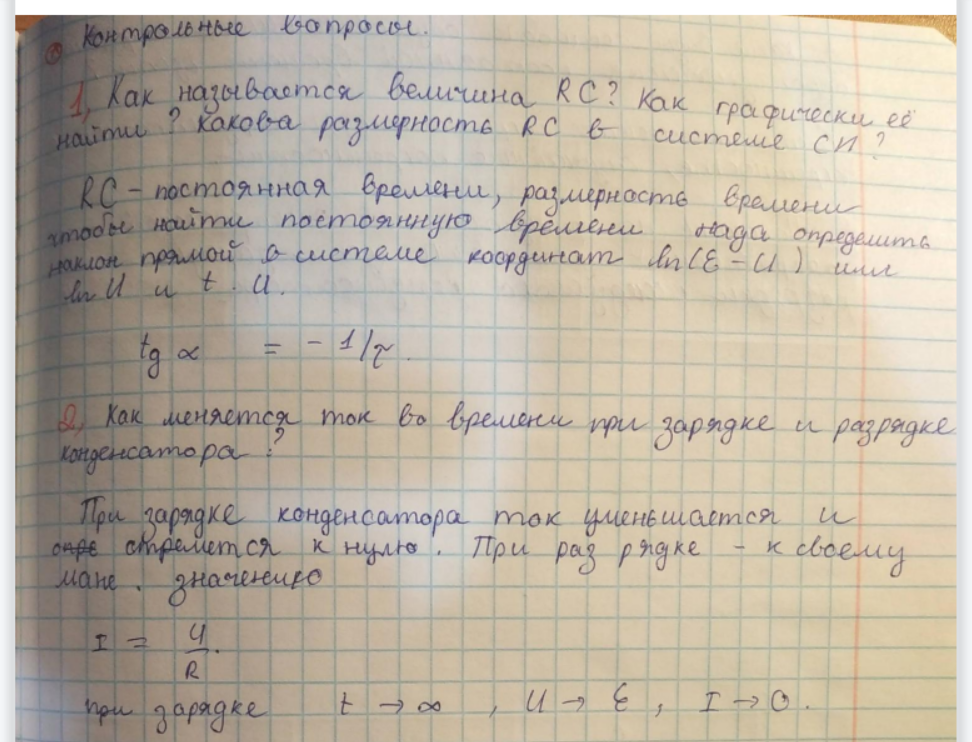 Контрольные вопросы.
1, Как называется величина RC? Как графически её
найти? Какова размерность RC в системе СИ?
RC - постоянная времени, размерность времени
чтобы найти постоянную времени нада определить
наклон прямой в системе координат ln(ε - U) или
ln U и t. U.
tg α = - 1/τ.
2, Как меняется ток во времени при зарядке и разрядке
конденсатора?
При зарядке конденсатора ток уменьшается и
стремется к нулю. При раз рядке - к своему
макс. значению
I = U/R.
при зарядке t → ∞, U → ε, I → 0.